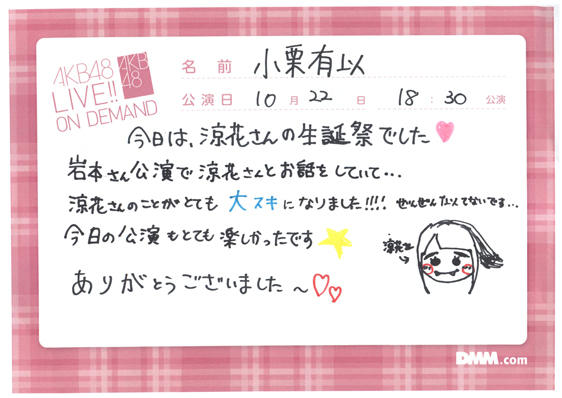 AKB48
LIVE!!
ON DEMAND
AKB
48
名前 小栗有以
公演日 10月22日 18:30公演
今日は、涼花さんの生誕祭でした
岩本さん公演で涼花さんとお話をしていて...
涼花さんのことがとても 大スキ になりました!!!! ぜんぜん似てないです...
今日の公演もとても楽しかったです
涼花さん
ありがとうございました〜
DMM.com